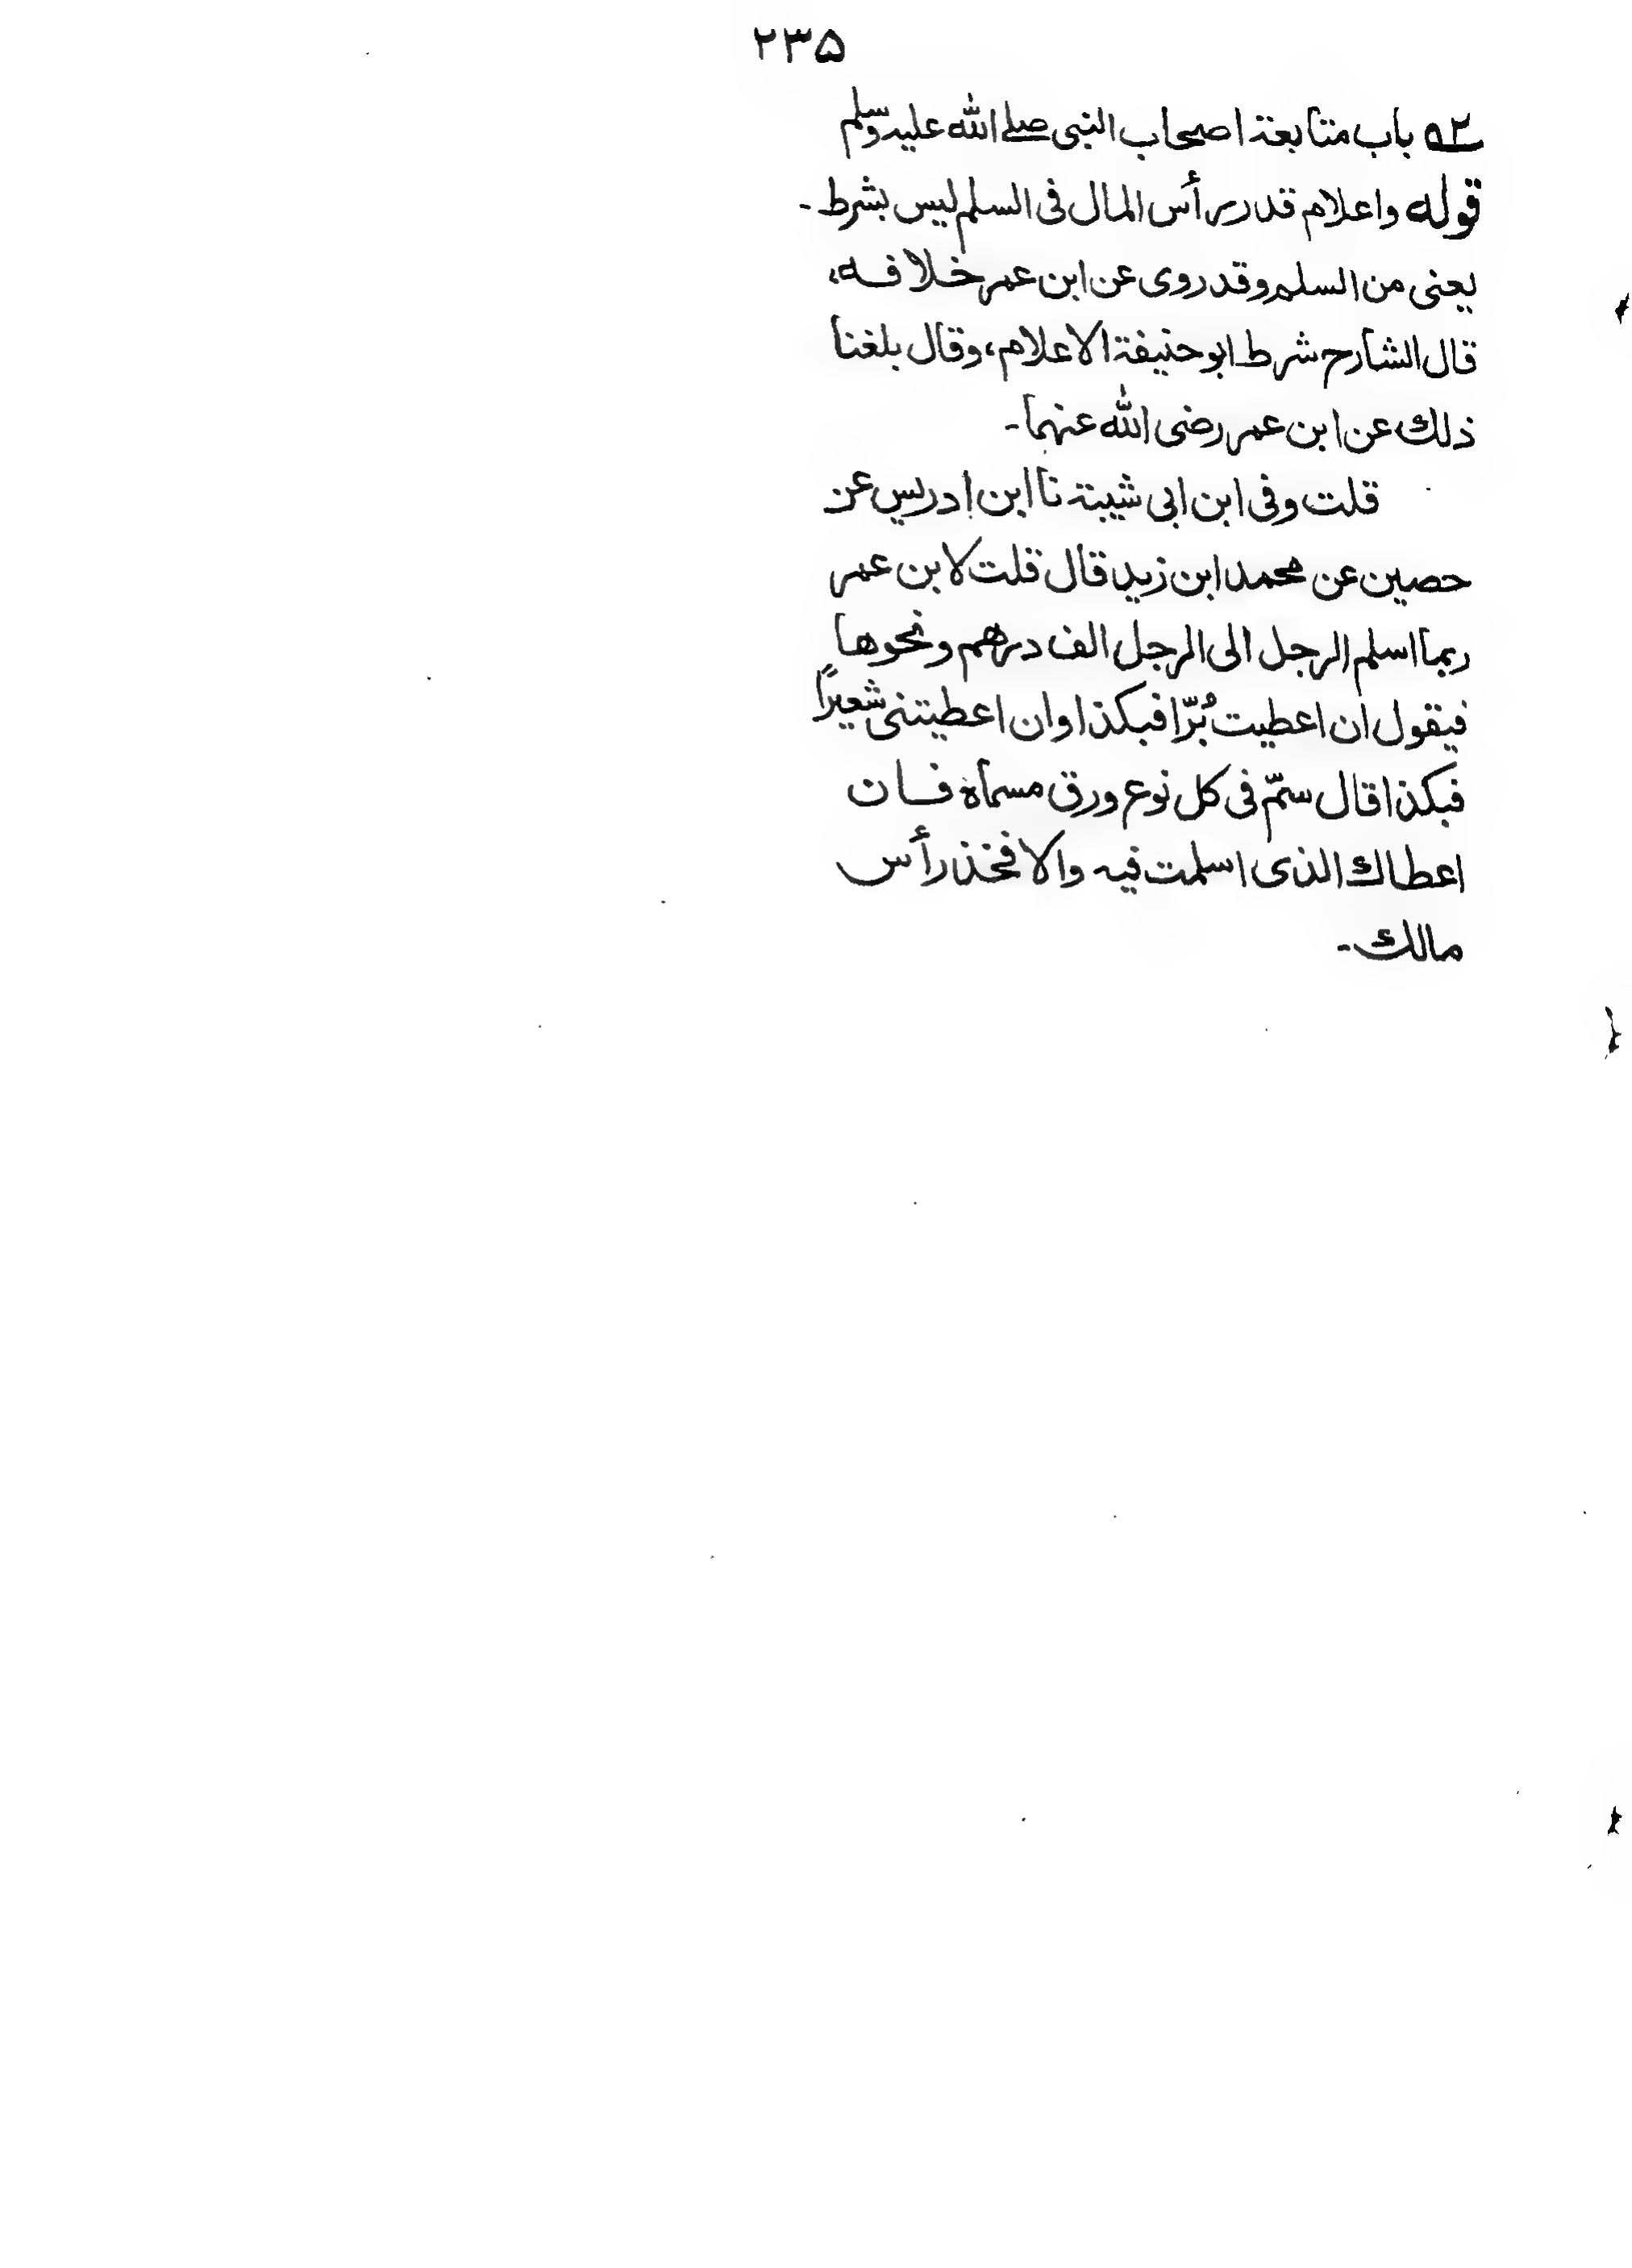 ۲۳۵
۵۲ باب متابعة اصحاب النبى صلے الله عليه وسلم
قوله واعلام قدر رأس المال فى السلم ليس بشرط -
يعنى من السلم وقد روى عن ابن عمر خلافه،
قال الشارح شرط ابو حنيفة الاعلام، وقال بلغنا
ذلك عن ابن عمر رضى الله عنهما -
قلت وفى ابن ابى شيبة نا ابن ادريس عن
حصين عن محمد ابن زيد قال قلت لابن عمر
ربما اسلم الرجل الى الرجل الف درهم ونحوها
فيقول ان اعطيت بُرّا فبكذا وان اعطيتنى شعيرًا
فبكذا قال سمّ فى كل نوع ورق مسماة فان
اعطاك الذى اسلمت فيه والا فخذ رأس
مالك -